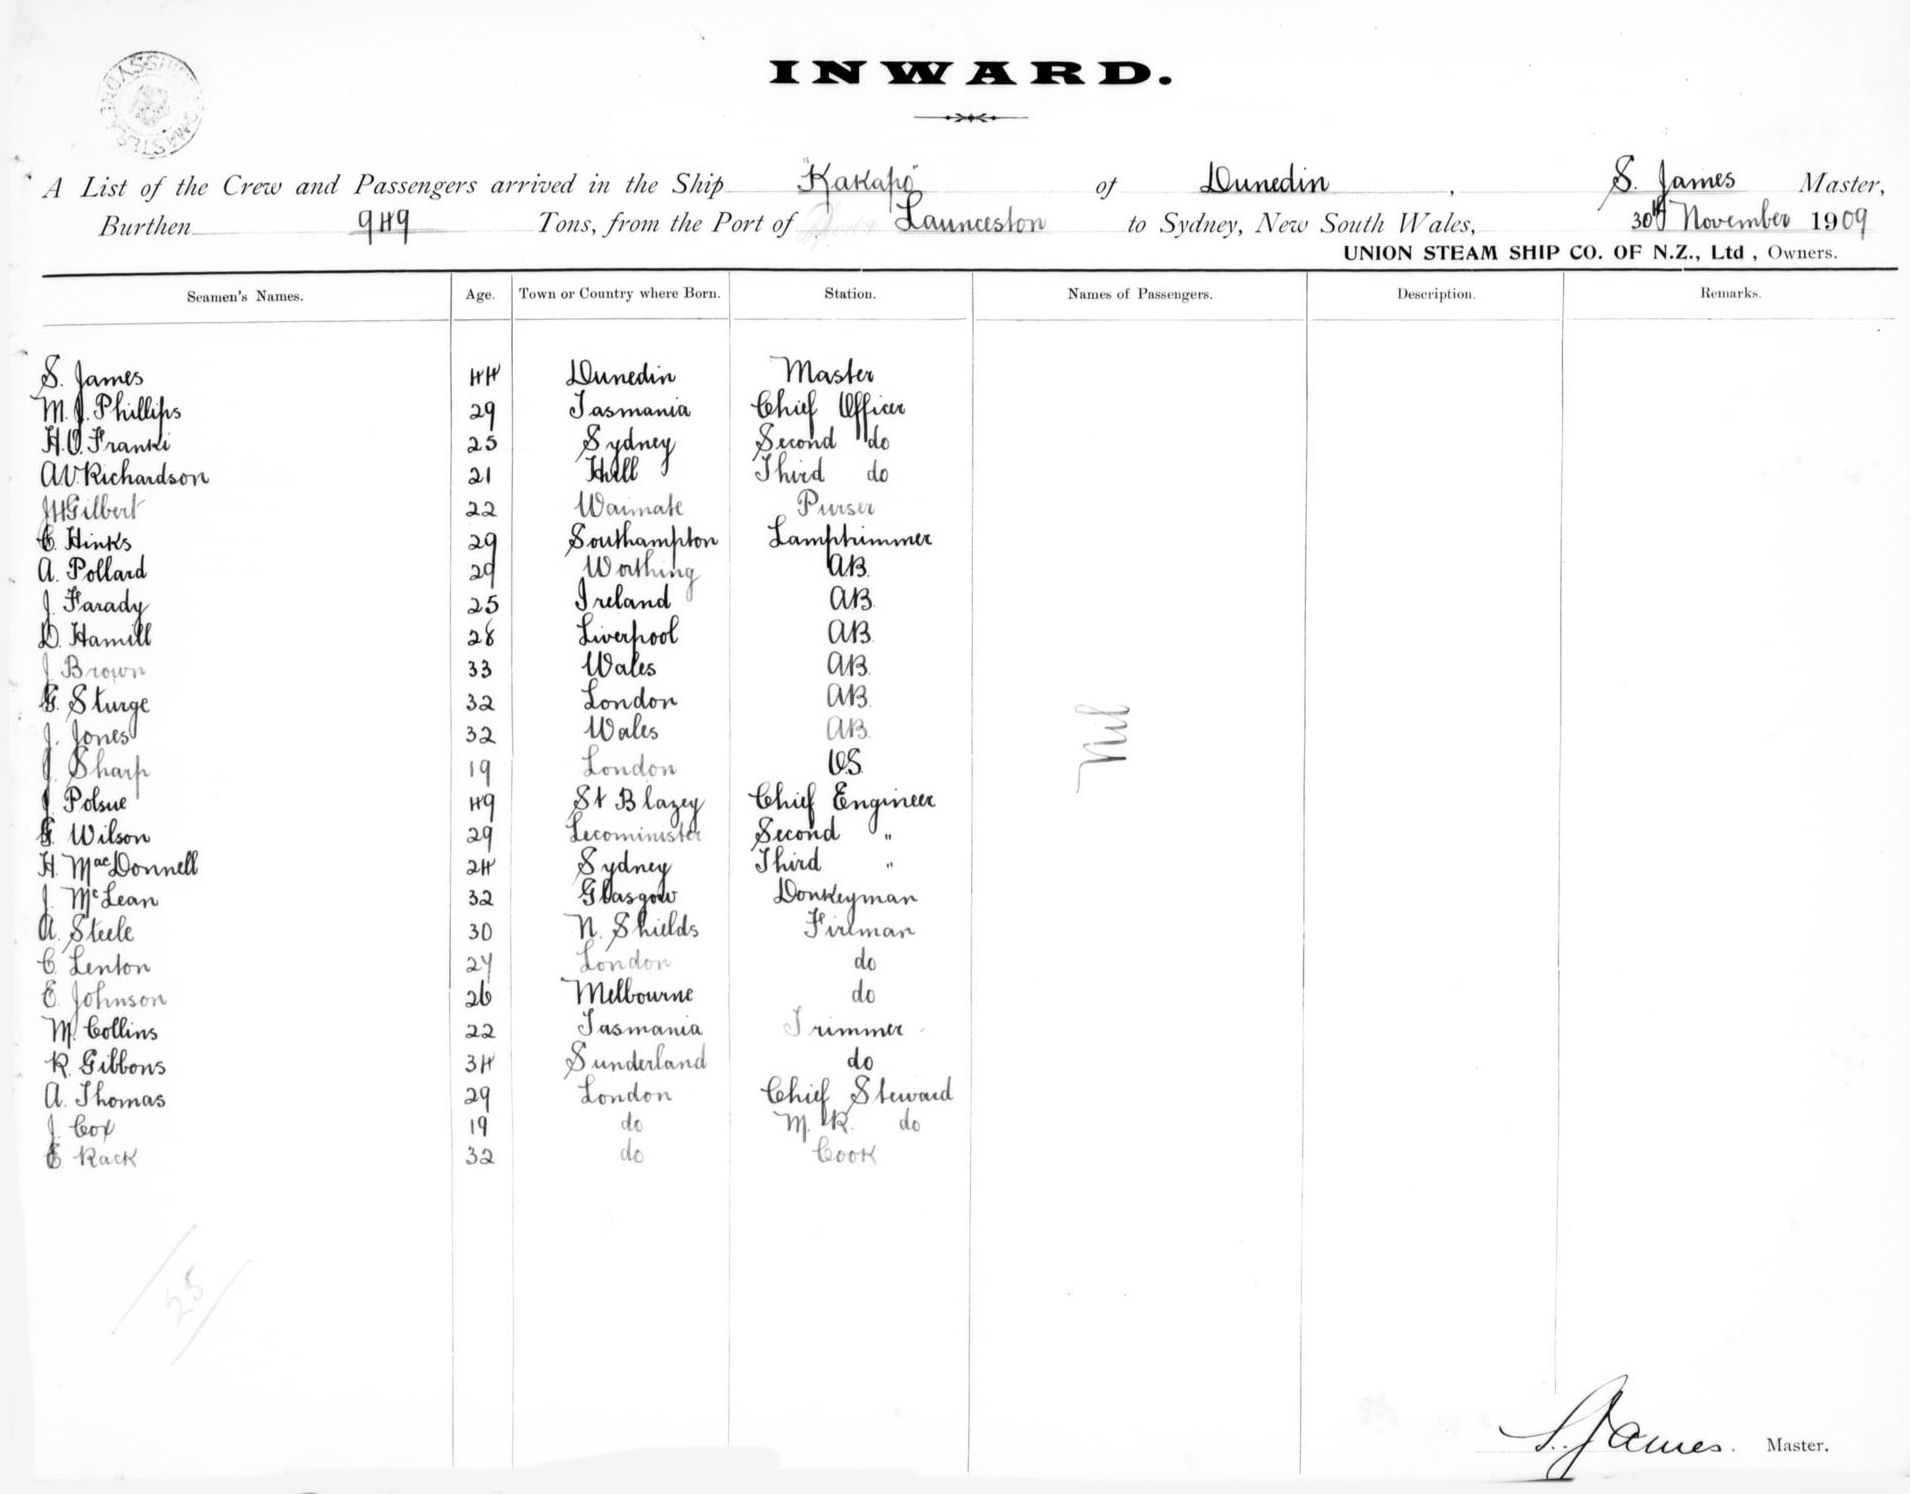 INWARD.
A List of the Crew and Passengers arrived in the Ship "Kakapo" of Dunedin, S. James Master,
Burthen 949 Tons, from the Port of Launceston to Sydney, New South Wales, 30th November 1909
UNION STEAM SHIP CO. OF N.Z., Ltd, Owners.
Seamen's Names. Age. Town or Country where Born. Station. Names of Passengers. Description. Remarks.
S. James 44 Dunedin Master
M. J. Phillips 29 Tasmania Chief Officer
H. O. Franki 25 Sydney Second do
A V Richardson 21 Hull Third do
J H Gilbert 22 Waimate Purser
C. Hinks 29 Southampton Lamptrimmer
A. Pollard 29 Worthing AB.
J. Farady 25 Ireland AB.
D. Hamill 28 Liverpool AB.
J Brown 33 Wales AB.
G. Sturge 32 London AB.
J. Jones 32 Wales AB.
J. Sharp 19 London OS.
J Polsue 49 St Blazey Chief Engineer
G. Wilson 29 Leominister Second "
H. MacDonnell 24 Sydney Third "
J. McLean 32 Glasgow Donkeyman
A. Steele 30 N. Shields Fireman
C. Lenton 24 London do
E. Johnson 26 Melbourne do
M. Collins 22 Tasmania Trimmer
R. Gibbons 34 Sunderland do
A. Thomas 29 London Chief Steward
J. Cox 19 do M. R. do
E. Rack 32 do Cook
Nil
25
S. James. Master.